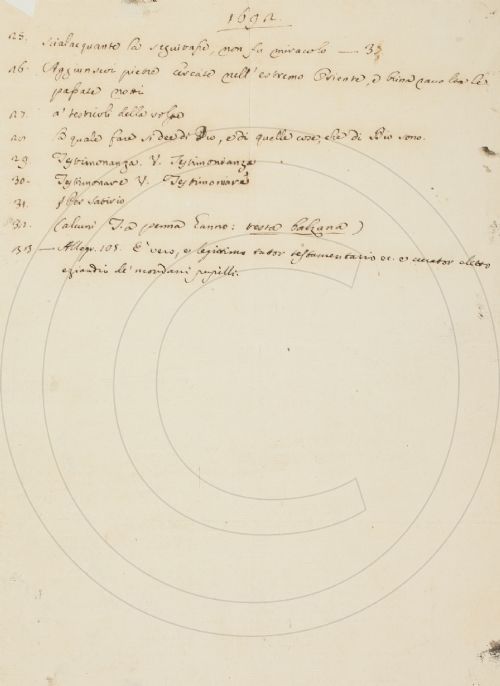 1692.
25. scialacquante la seguitasse, non fu miracolo — 33
26. Aggiunsevi pietre cercate nell' estremo Oriente, e
passate notti
27. a' testicoli della volpe
28. quale fare si dee di Dio, e di quelle cose, che di Dio sono.
29. Testimonanza. V. Testimonianza
30. Testimonare V. Testimoniare
31. Satirio
32. (alcuni T. a penna hanno: testa balzana)
33 — Allegr. 105. E' vero, e legittimo tutor testamentario ec. e curator eletto
eziandio de' mondani pupilli.